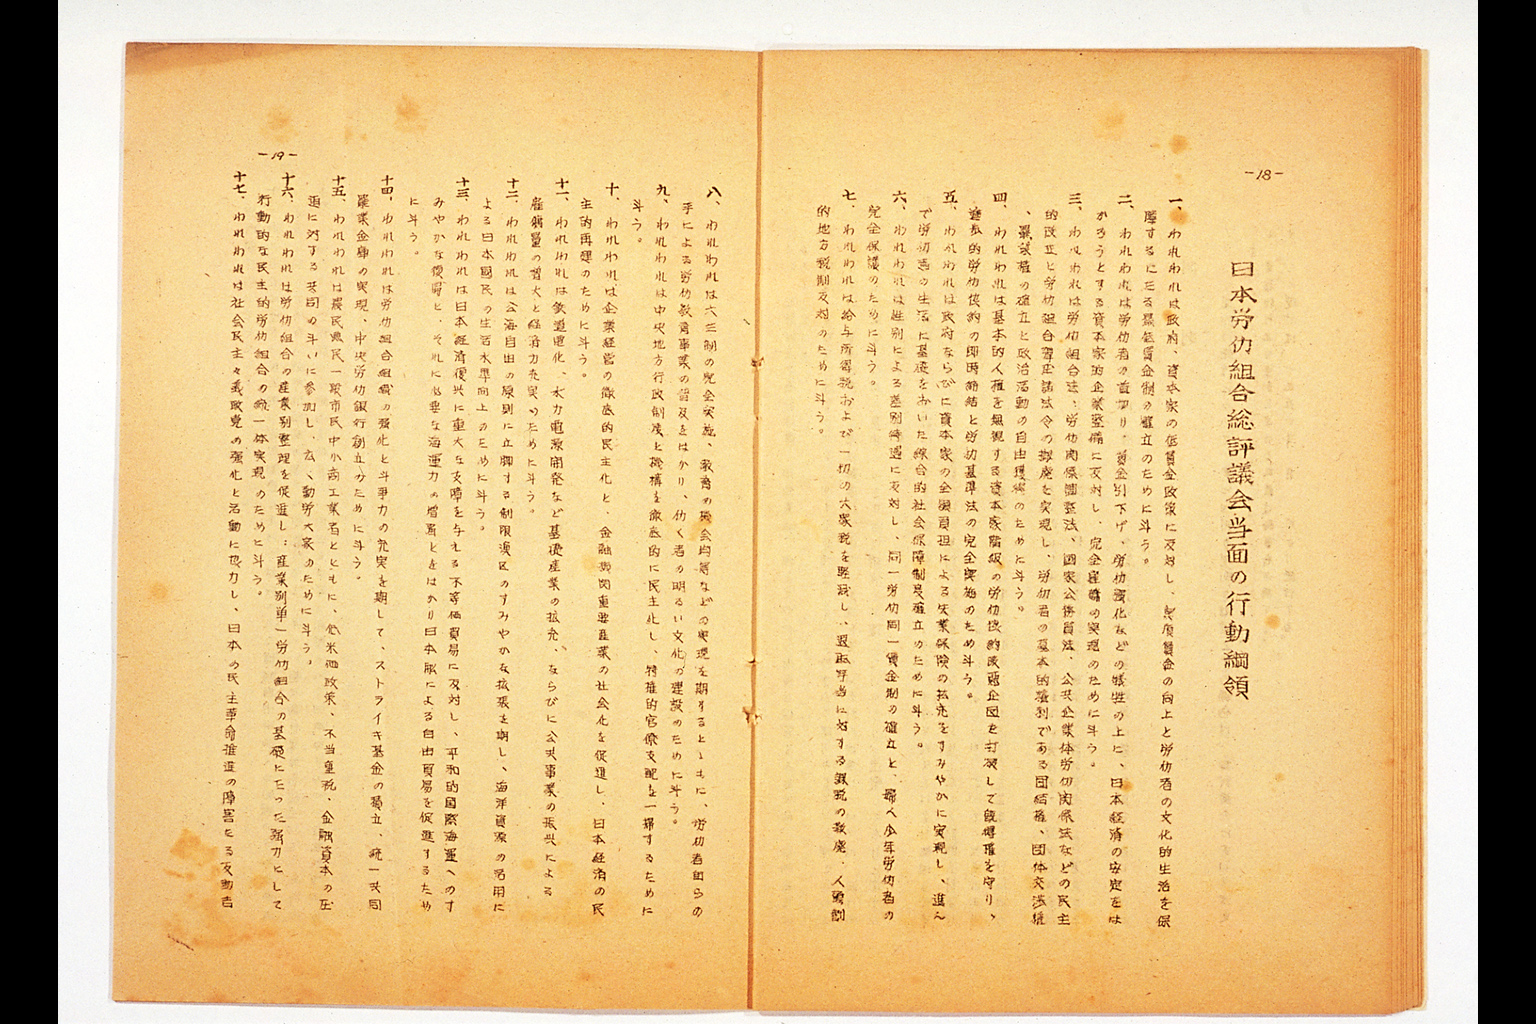 -18-
日本労仂組合総評議会当面の行動綱領
一、われわれは政府、資本家の低賃金政策に反対し、実質賃金の向上と労仂者の文化的生活を保
障するに足る最低賃金制の確立のために斗う。
二、われわれは労仂者の首切り、賃金引下げ、労仂強化などの犠牲の上に、日本経済の安定をは
かろうとする資本家的企業整備に反対し、完全雇傭の実現のために斗う。
三、われわれは労仂組合法、労仂関係調整法、国家公務員法、公共企業体労仂関係法などの民主
的改正と労仂組合弾圧諸法令の撤廃を実現し、労仂者の基本的権利である団結権、団体交渉権
、罷業権の確立と政治活動の自由獲得のために斗う。
四、われわれは基本的人権を無視する資本家階級の労仂協約改悪企図を打破して既得権を守り、
進歩的労仂協約の即時締結と労仂基準法の完全実施のため斗う。
五、われわれは政府ならびに資本家の全額負担による失業保険の拡充をすみやかに実現し、進ん
で労仂者の生活に基礎をおいた綜合的社会保障制度確立のために斗う。
六、われわれは性別による差別待遇に反対し、同一労仂同一賃金制の確立と、婦人少年労仂者の
完全保護のために斗う。
七、われわれは給与所得税および一切の大衆税を軽減し、退職手当に対する課税の撤廃、人頭割
的地方税制反対のために斗う。
-19-
八、われわれは六三制の完全実施、教育の機会均等などの実現を期するとともに、労仂者自らの
手による労仂教育事業の普及をはかり、仂く者の明るい文化の建設のために斗う。
九、われわれは中央地方行政制度と機構を徹底的に民主化し、特権的官僚支配を一掃するために
斗う。
十、われわれは企業経営の徹底的民主化と、金融機関重要産業の社会化を促進し、日本経済の民
主的再建のために斗う。
十一、われわれは鉄道電化、水力電源開発など基礎産業の拡充、ならびに公共事業の振興による
雇傭量の増大と経済力充実のために斗う。
十二、われわれは公海自由の原則に立脚する制限漁区のすみやかな拡張を期し、海洋資源の活用に
よる日本国民の生活水準向上のために斗う。
十三、われわれは日本経済復興に重大な支障を与える不等価貿易に反対し、平和的国際海運へのす
みやかな復帰と、それに必要な海運力の増着とをはかり日本船による自由貿易を促進するため
に斗う。
十四、われわれは労仂組合組織の強化と斗争力の充実を期して、ストライキ基金の積立、統一共同
罷業金庫の実現、中央労仂銀行創立のために斗う。
十五、われわれは農民漁民一般市民中小商工業者とともに、低米価政策、不当重税、金融資本の圧
迫に対する共同の斗いに参加し、広く勤労大衆のために斗う。
十六、われわれは労仂組合の産業別整理を促進し、産業別単一労仂組合の基礎にたった強力にして
行動的な民主的労仂組合の統一体実現のために斗う。
十七、われわれは社会民主々義政党の強化と活動に協力し、日本の民主革命推進の障害たる反動吉